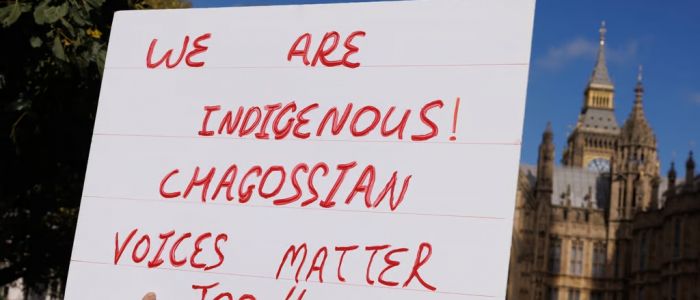 WE ARE
INDIGENOUS!
CHAGOSSIAN
VOICES MATTER
TOO!!